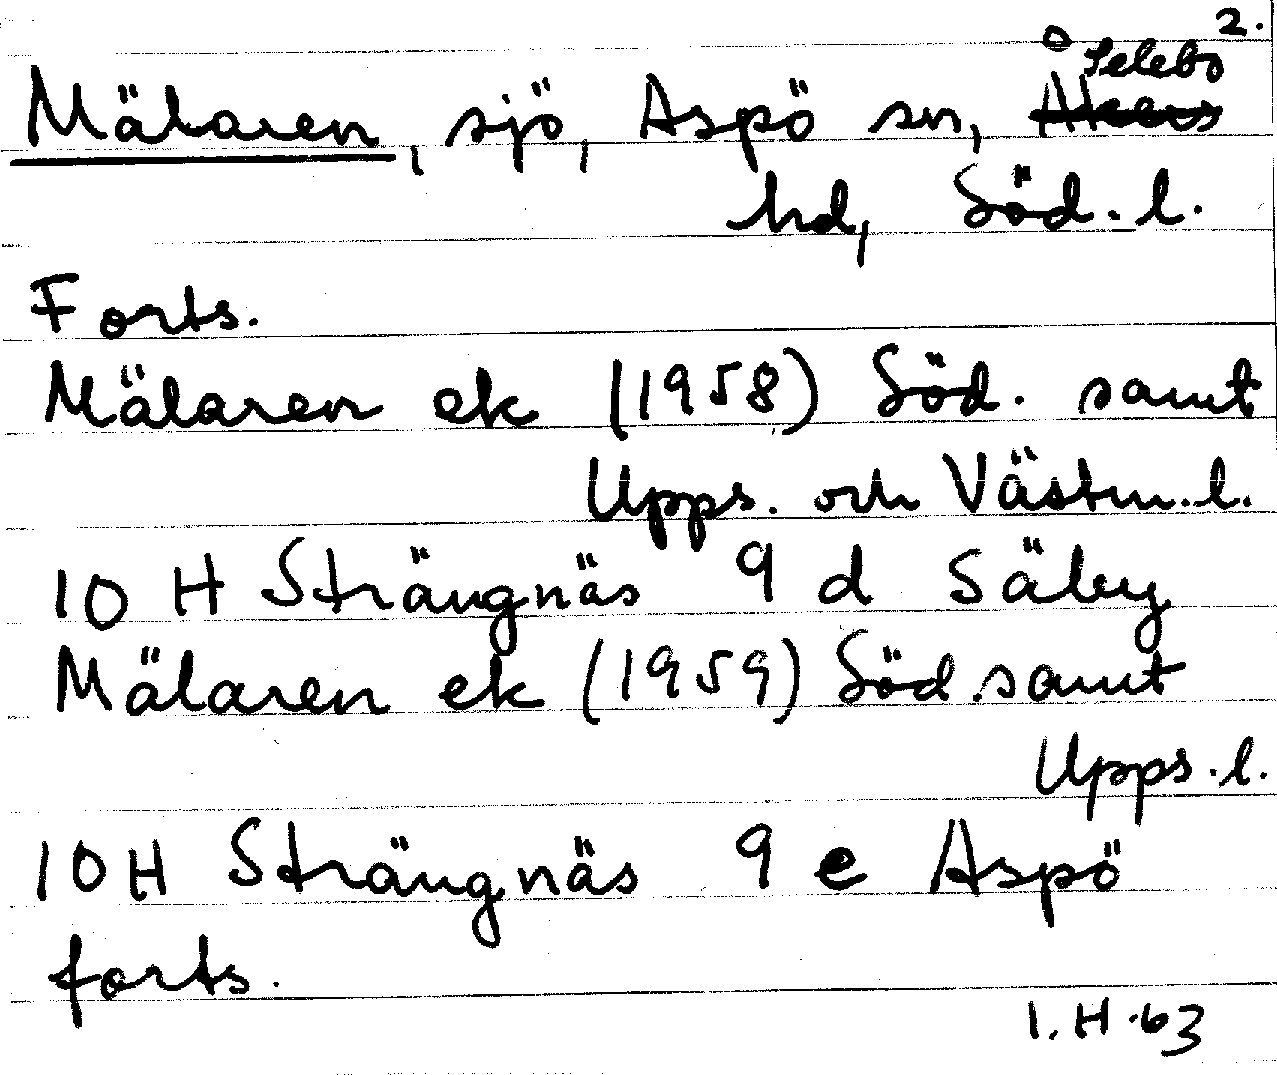 2.
Selebo
Mälaren, sjö, Aspö sn, Åkers
hd, Söd. l.
Forts.
Mälaren ek (1958) Söd. samt
Upps. och Västm. l.
10 H Strängnäs 9 d Säby
Mälaren ek (1959) Söd. samt
Upps. l.
10 H Strängnäs 9 e Aspö
forts.
I. H. 63